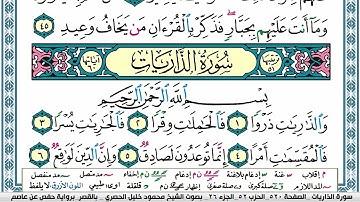 وَمَآ أَنتَ عَلَيْهِم بِجَبَّارٍ فَذَكِّرْ بِٱلْقُرْءَانِ مَن يَخَافُ وَعِيدِ ٤٥
سُورَةُ الذَّارِيَاتِ
بِسْمِ ٱللَّهِ ٱلرَّحْمَٰنِ ٱلرَّحِيمِ
وَٱلذَّٰرِيَٰتِ ذَرْوًا ١ فَٱلْحَٰمِلَٰتِ وِقْرًا ٢ فَٱلْجَٰرِيَٰتِ يُسْرًا ٣
فَٱلْمُقَسِّمَٰتِ أَمْرًا ٤ إِنَّمَا تُوعَدُونَ لَصَادِقٌ ٥ وَإِنَّ ٱلدِّينَ لَوَٰقِعٌ ٦
سورة الذاريات الصفحة ٥٢٠ الحزب ٥٢ الجزء ٢٦ بصوت الشيخ محمود خليل الحصري بالقصر برواية حفص عن عاصم